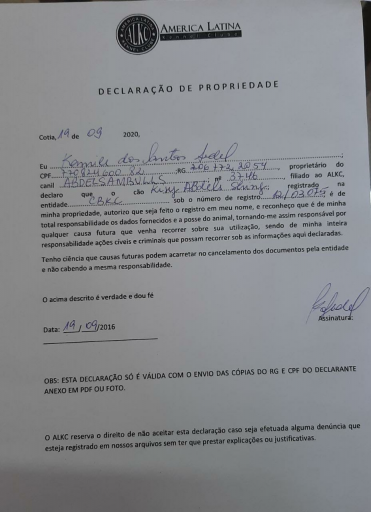 ALKC
AMERICA LATINA
KENNEL CLUB
DECLARAÇÃO DE PROPRIEDADE
Cotia, 19 de 09 2020,
Eu dos Santos
CPF RG 206772 2054 proprietário do
canil ABDELSAMBULLS nº 3746 filiado ao ALKC,
declaro que o cão King registrado na
entidade CBKC sob o número de registro é de
minha propriedade, autorizo que seja feito o registro em meu nome, e reconheço que é de minha
total responsabilidade os dados fornecidos e a posse do animal, tornando-me assim responsável por
qualquer causa futura que venha recorrer sobre sua utilização, sendo de minha inteira
responsabilidade ações cíveis e criminais que possam recorrer sob as informações aqui declaradas.
Tenho ciência que causas futuras podem acarretar no cancelamento dos documentos pela entidade
e não cabendo a mesma responsabilidade.
O acima descrito é verdade e dou fé
Assinatura:
Data: 19/09/2016
OBS: ESTA DECLARAÇÃO SÓ É VÁLIDA COM O ENVIO DAS CÓPIAS DO RG E CPF DO DECLARANTE
ANEXO EM PDF OU FOTO.
O ALKC reserva o direito de não aceitar esta declaração caso seja efetuada alguma denúncia que
esteja registrado em nossos arquivos sem ter que prestar explicações ou justificativas.